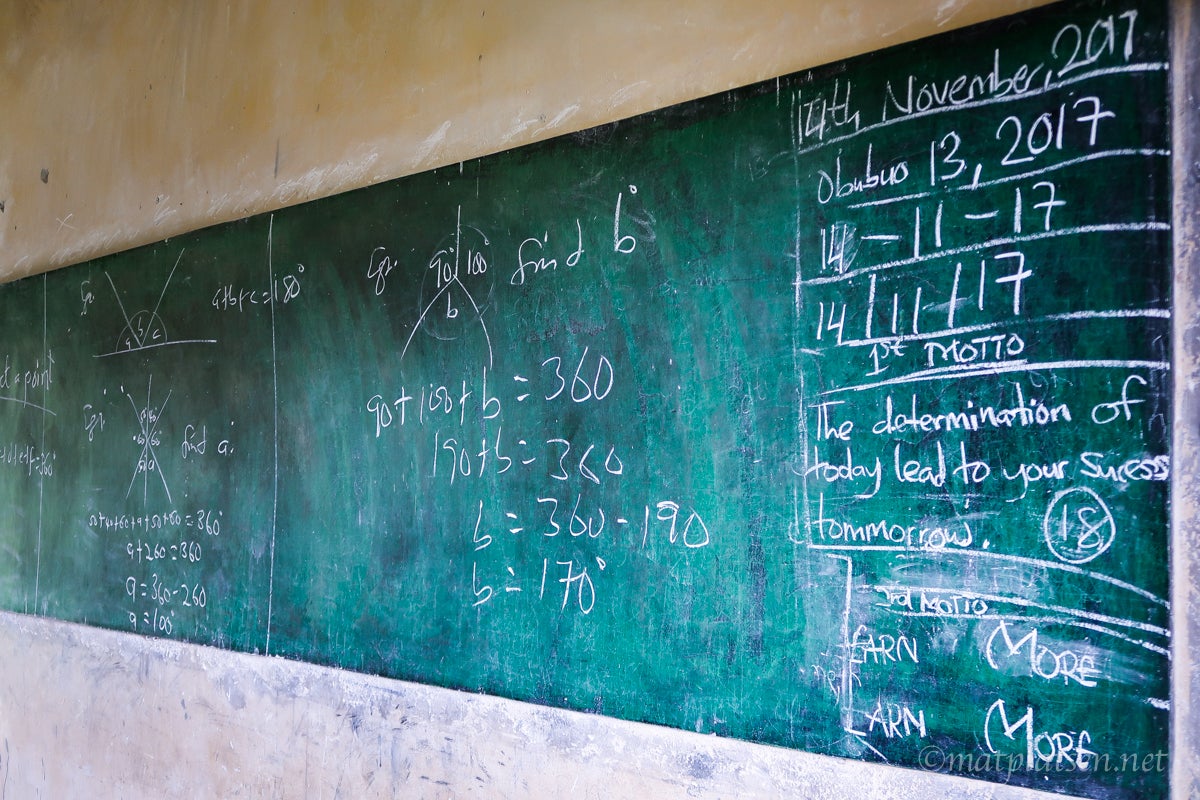 ct a point
=360°
Eg.
a b c
a+b+c=180°
Eg.
find a.
50+40+60+a+50+60=360°
a+260=360
a=360-260
a=100°
Eg.
90° 100°
b
find b°
90+100+b=360
190+b=360
b=360-190
b=170°
14th November, 2017
Obubuo 13, 2017
14-11-17
14/11/17
1st MOTTO
The determination of
today lead to your sucess
tommorrow. 18
2nd MOTTO
EARN MORE
LEARN MORE
©matpratsen.net